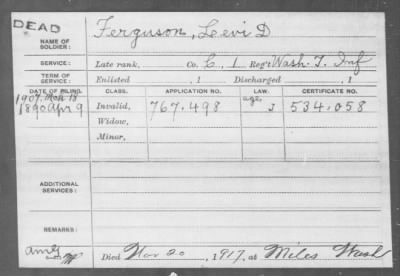 DEAD
NAME OF SOLDIER: Ferguson, Levi D
SERVICE: Late rank, Co. C, 1 Reg't Wash. T. Inf
TERM OF SERVICE: Enlisted , 1 Discharged , 1
DATE OF FILING. CLASS. APPLICATION NO. LAW. CERTIFICATE NO.
1907. Mch 18 age
1890 Apr 9 Invalid, 767.498 J 534.058
Widow,
Minor,
ADDITIONAL SERVICES:
REMARKS:
Died Nov 20, 1917, at Miles Wash